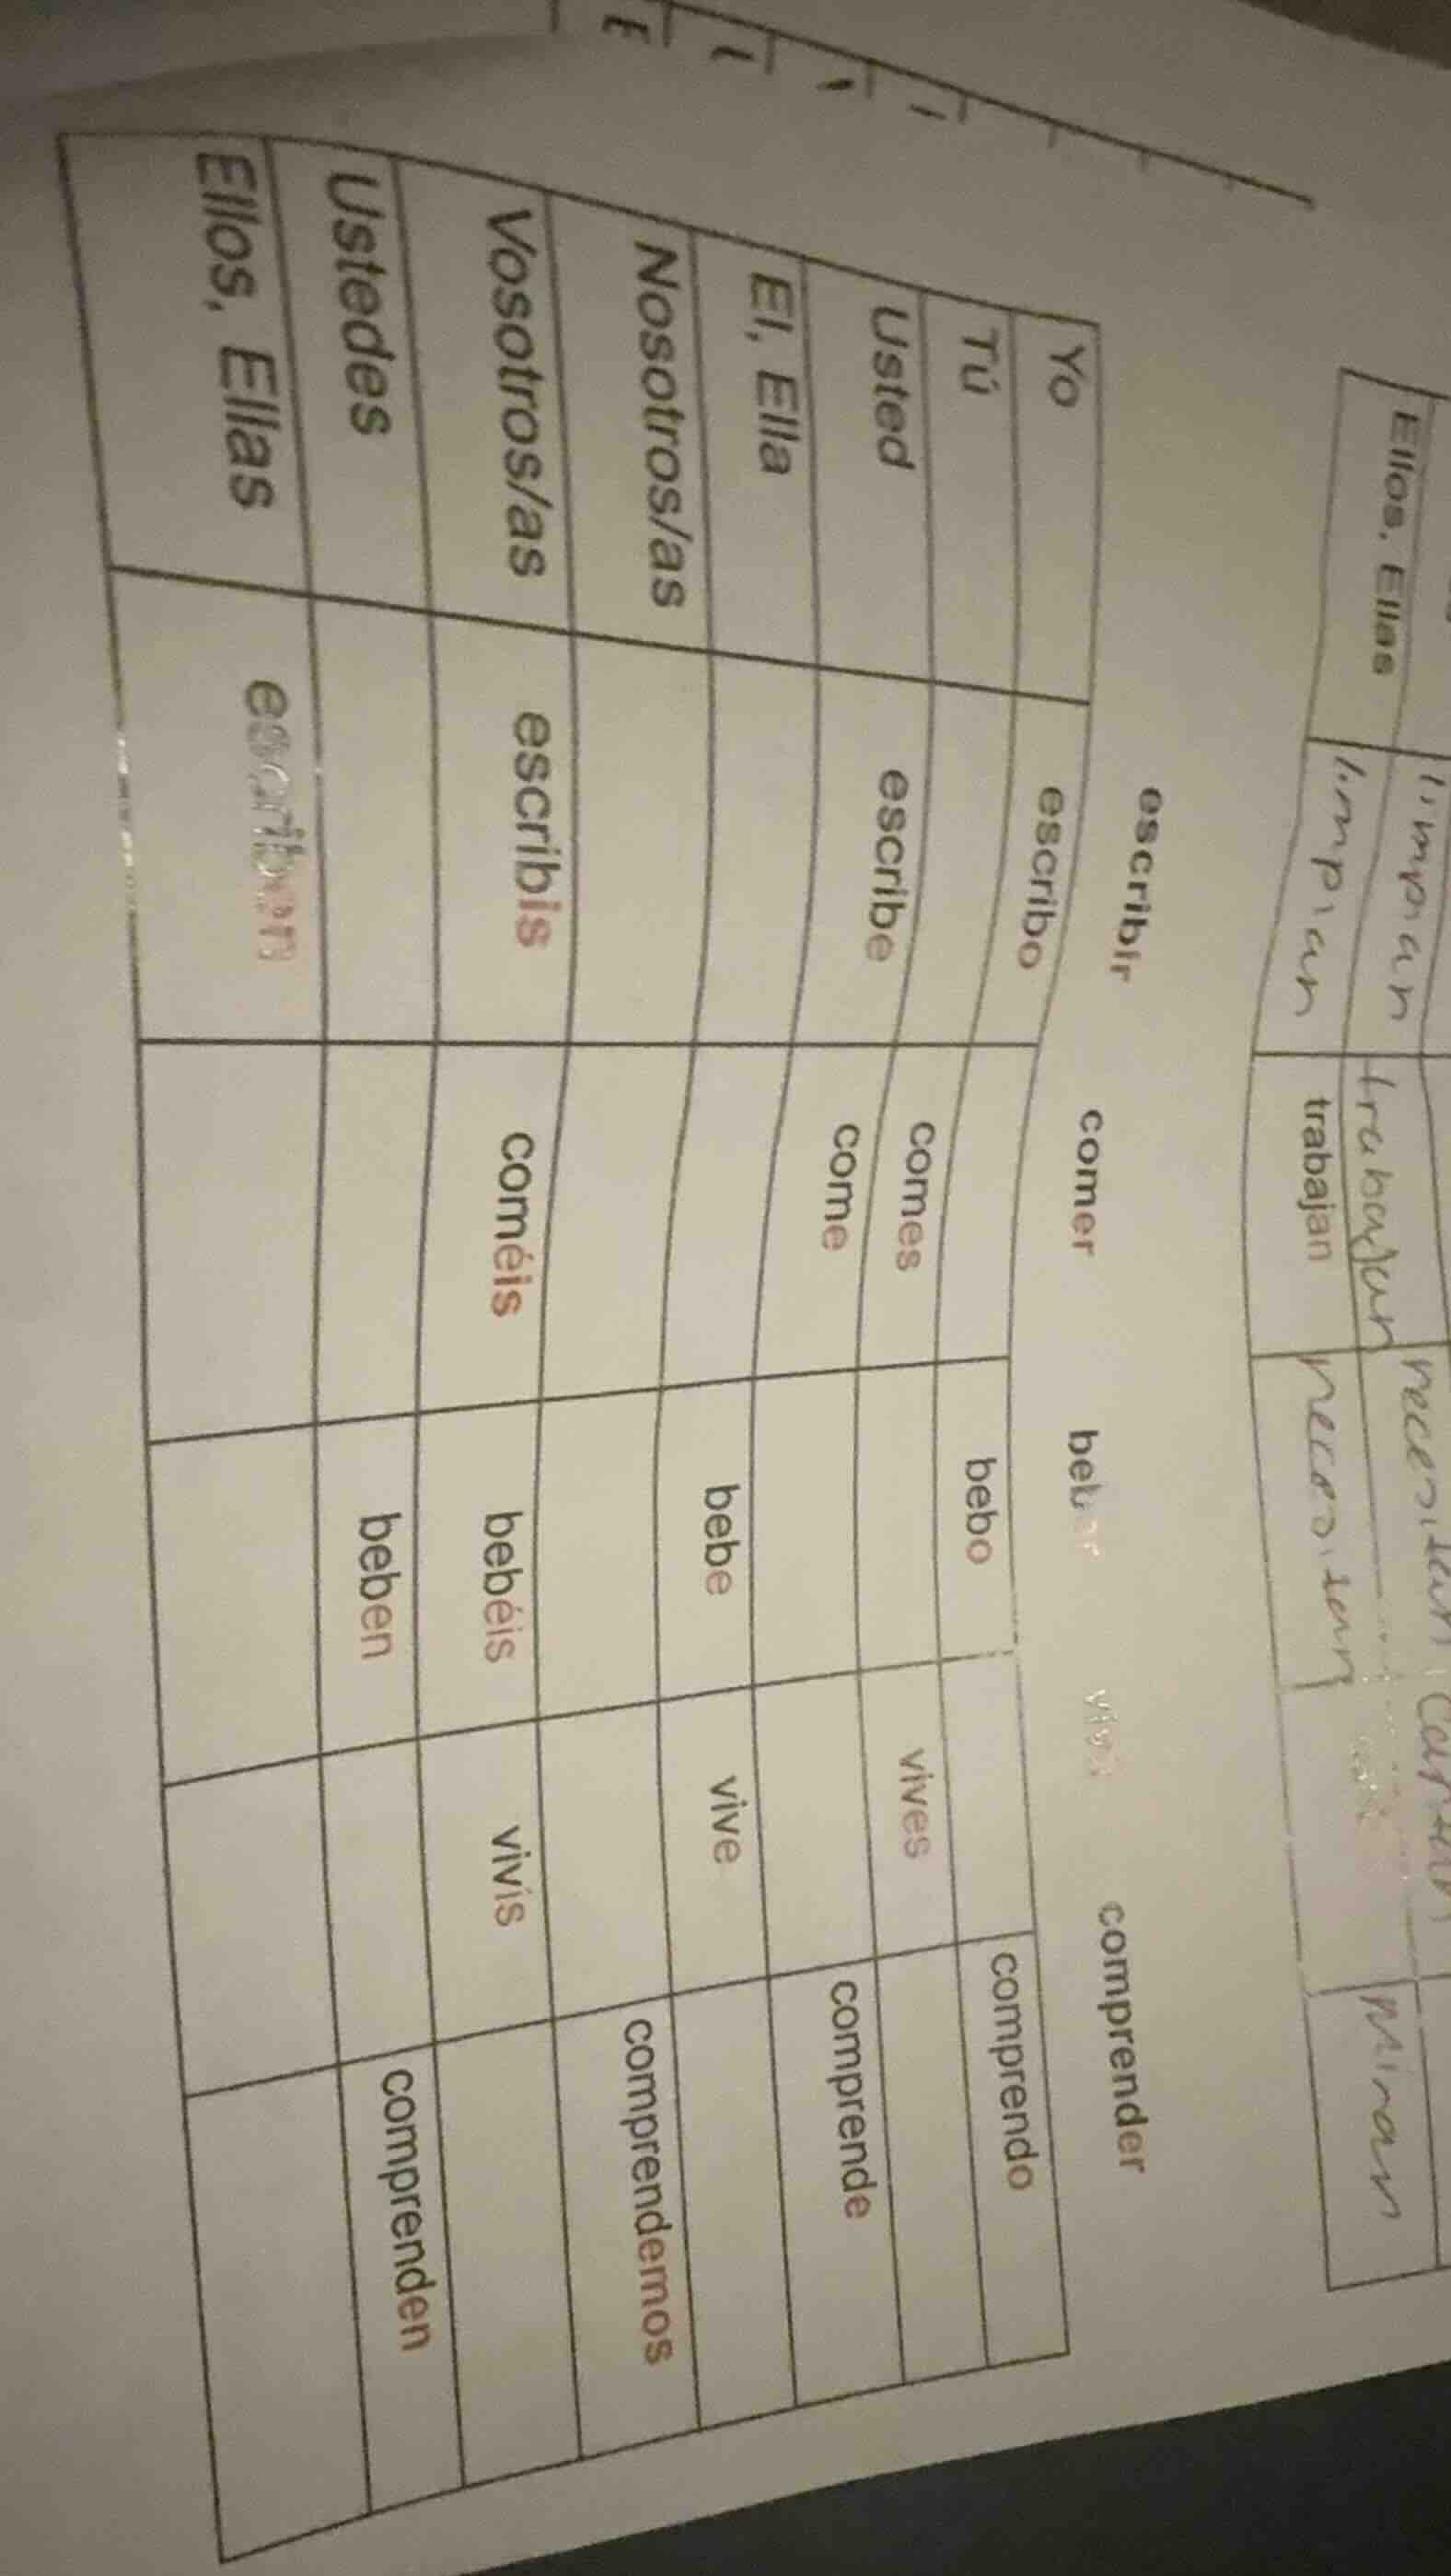 limpian necesitan cantan
Ellos, Ellas limpian trabajan necesitan miran
trabajan
escribir comer beber vivir comprender
Yo escribo bebo comprendo
Tú comes vives
Usted escribe come comprende
El, Ella bebe vive
Nosotros/as comprendemos
Vosotros/as escribis coméis bebéis vivís
Ustedes beben comprenden
Ellos, Ellas escriben